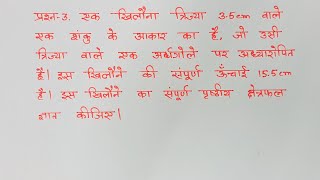 प्रश्न-3. एक खिलौना त्रिज्या 3.5cm वाले
एक शंकु के आकार का है, जो उसी
त्रिज्या वाले एक अर्धगोले पर अध्यारोपित
है। इस खिलौने की संपूर्ण ऊँचाई 15.5cm
है। इस खिलौने का संपूर्ण पृष्ठीय क्षेत्रफल
ज्ञात कीजिए।